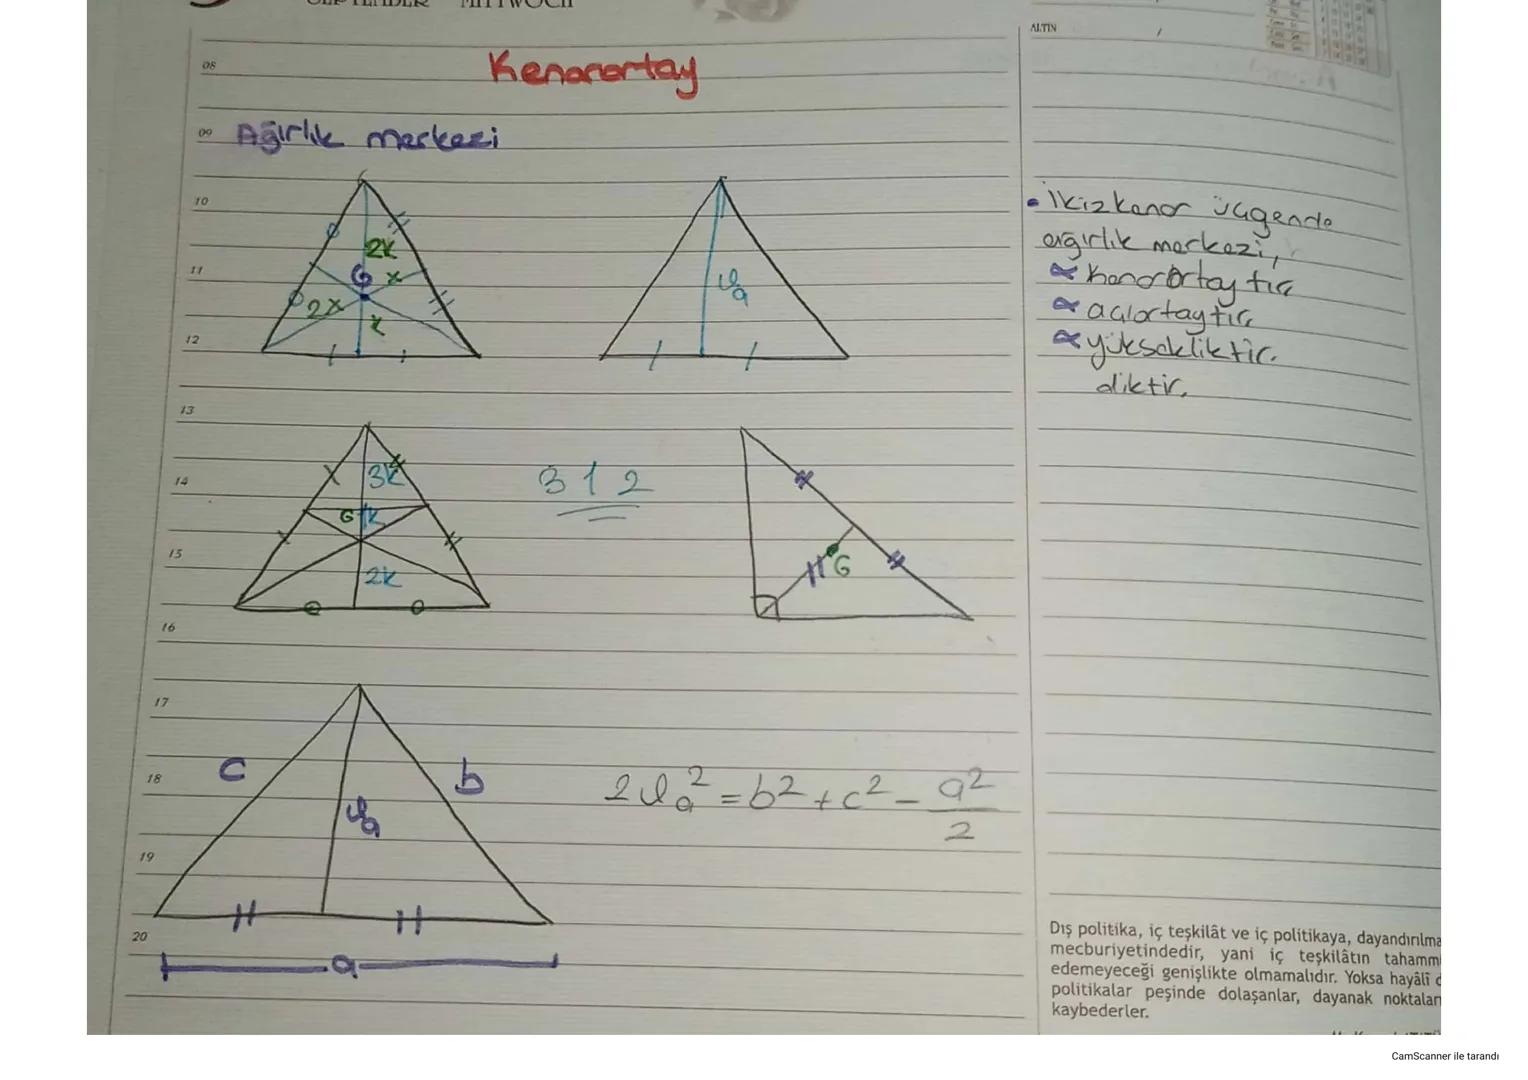 SEPTEMBER MITTWOCH
ALTIN
08
Kenarortay
09
Ağırlık merkezi
10
2k
G x
11
2x
k
12
Va
• İkizkenar üçgende
ağırlık merkezi,
kenarortaytır
açıortaytır
yüksekliktir.
diktir.
13
3k
3 1 2
14
G k
15
G
2k
16
17
c
b
18
Va
2Va² = b² + c² - a²/2
19
20
a
Dış politika, iç teşkilât ve iç politikaya, dayandırılma
mecburiyetindedir, yani iç teşkilâtın tahamm
edemeyeceği genişlikte olmamalıdır. Yoksa hayâlî d
politikalar peşinde dolaşanlar, dayanak noktaları
kaybederler.
CamScanner ile tarandı